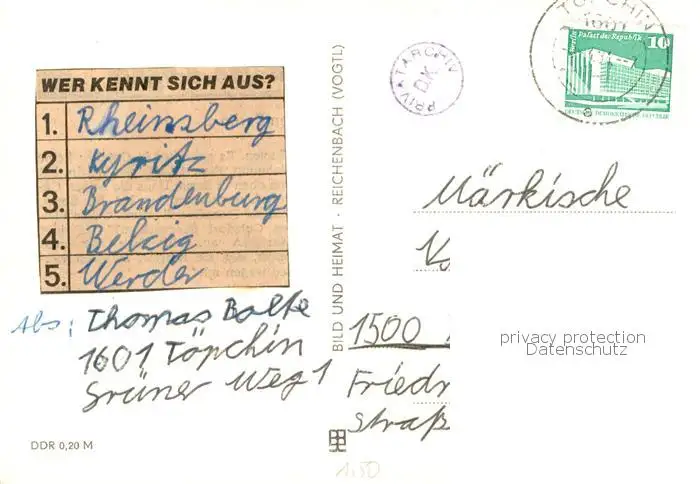 WER KENNT SICH AUS?
1. Rheinsberg
2. Kyritz
3. Brandenburg
4. Belzig
5. Werder
Abs: Thomas Bolte
1601 Töpchin
Grüner Weg 1
DDR 0,20 M
BILD UND HEIMAT · REICHENBACH (VOGTL)
PRIVATARCHIV
D.K.
TÖPCHIN
1601
Berlin Palast der Republik 10
DEUTSCHE DEMOKRATISCHE REPUBLIK
Märkische
1500
Friedr
Straß
privacy protection
Datenschutz
1,50